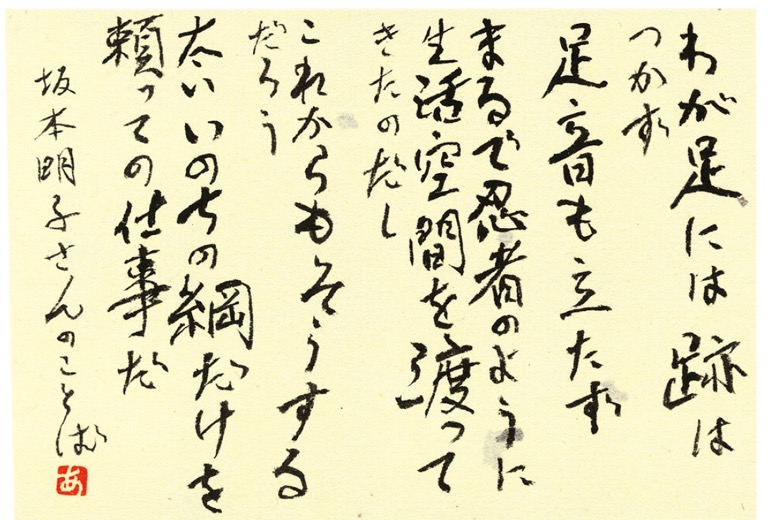 わが足には跡は
つかず
足音も立たず
まるで忍者のように
生活空間を渡って
きたのだし
これからもそうする
だろう
太いいのちの綱だけを
頼っての仕事だ
坂本明子さんのことば
あ